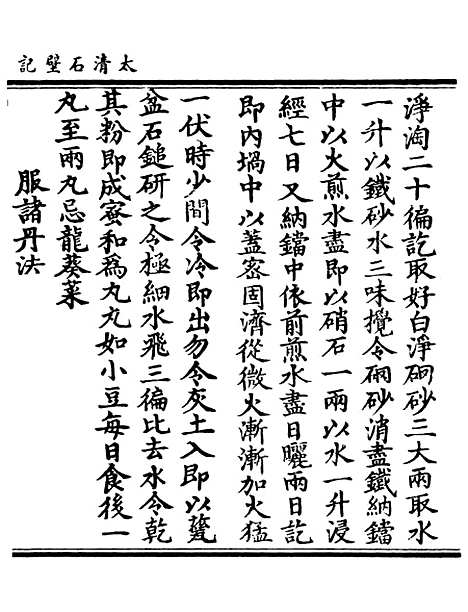 太清石壁記
淨淘二十徧訖取好白淨硇砂三大兩取水
一升以鐵砂水三味攪令硇砂消盡鐵納鐺
中以火煎水盡即以硝石一兩以水一升浸
經七日又納鐺中依前煎水盡日曬兩日訖
即內堝中以蓋密固濟從微火漸漸加火猛
一伏時少間令冷即出勿令灰土入即以甆
盆石鎚研之令極細水飛三徧比去水令乾
其粉即成蜜和爲丸丸如小豆每日食後一
丸至兩丸忌龍葵菜
服諸丹法